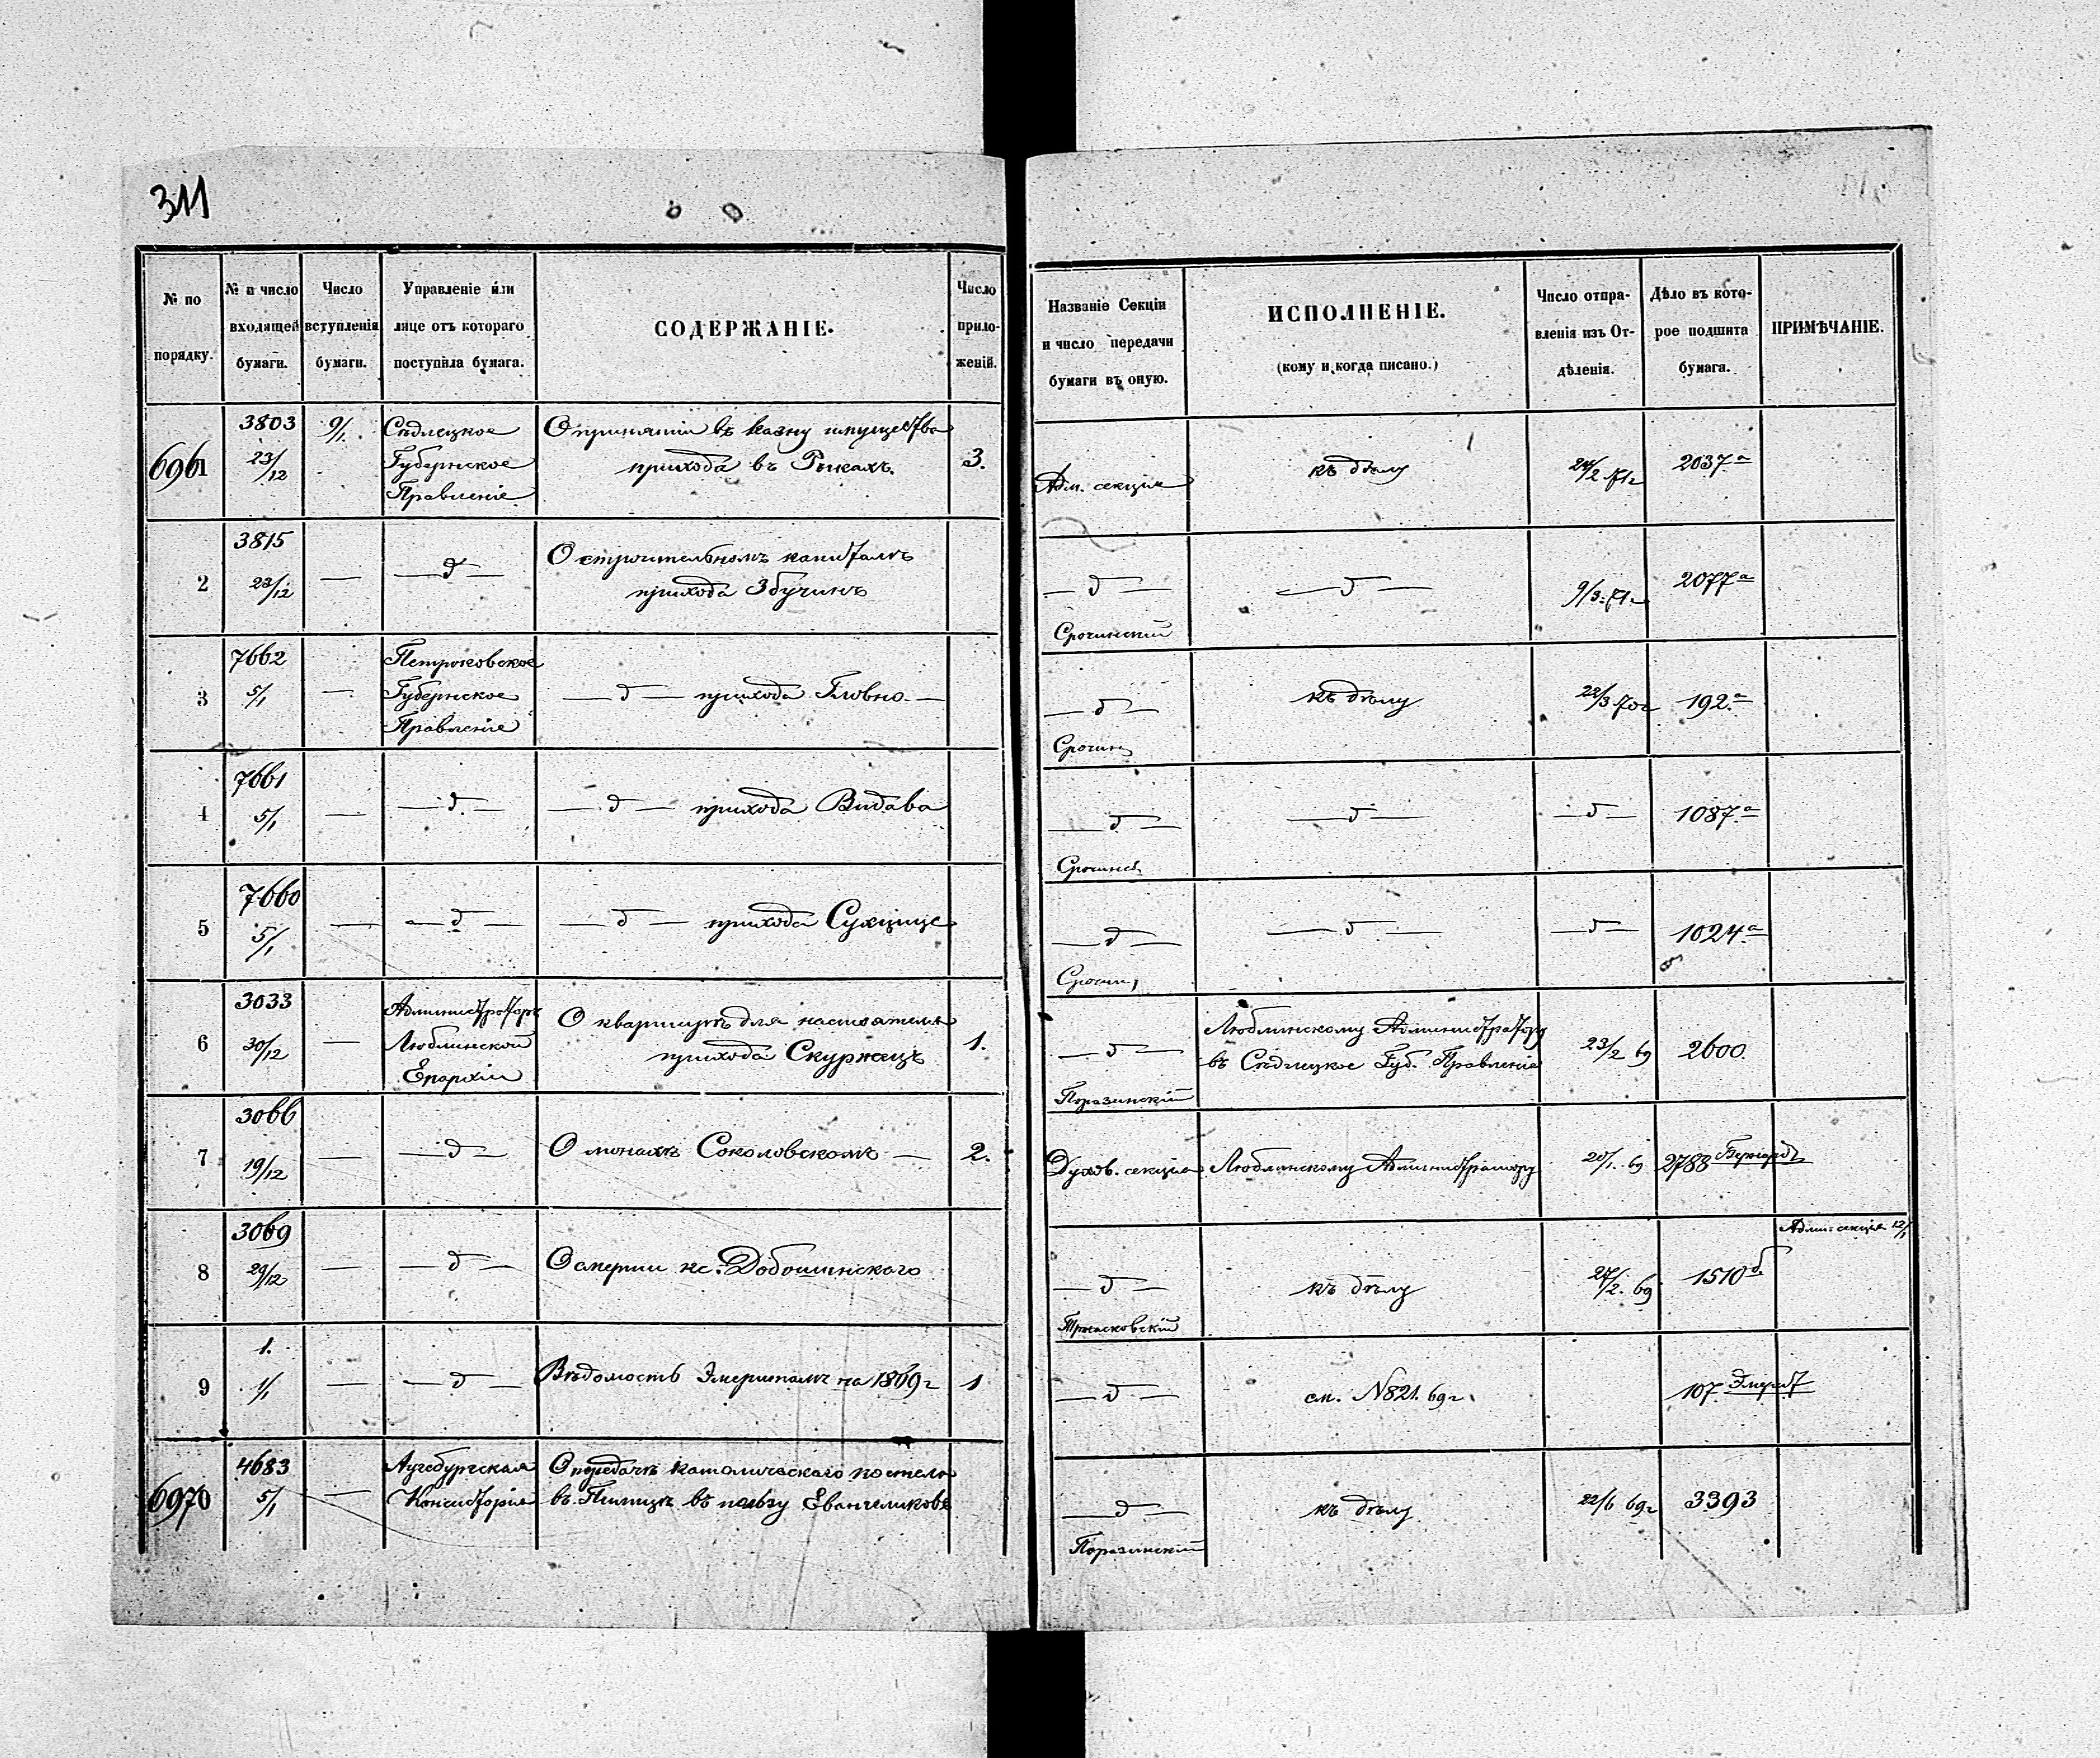 311
№ по
порядку.
№ и число
входящей
бумаги.
Число
вступленія
бумаги.
Управленіе или
лице отъ котораго
поступила бумага.
СОДЕРЖАНІЕ.
Число
прило-
женій.
Названіе Секціи
и число передачи
бумаги въ оную.
ИСПОЛНЕНІЕ.
(кому и когда писано.)
Число отпра-
вленія изъ От-
дѣленія.
Дѣло въ кото-
рое подшита
бумага.
ПРИМѢЧАНІЕ.
6961
3803
23/12
9/1.
Сѣдлецкое
Губернское
Правленіе
О принятіи въ казну имущества
прихода въ Рыкахъ.
3.
Адм. секція
къ дѣлу
24/2 71 г
2037 а
2
3815
23/12
—
— д —
О строительномъ капиталѣ
прихода Збучинъ
— д —
Срочинскій
— д —
9/3. 71 г
2077 а
3
7662
5/1
—
Петроковское
Губернское
Правленіе
— д — прихода Гловно. —
— д —
Срочин
къ дѣлу
22/3 70 г
192. а
4
7661
5/1
—
— д —
— д — прихода Видава
— д —
Срочинс
— д —
— д —
1087. а
5
7660
5/1
—
— д —
— д — прихода Сухцице
— д —
Срочин
— д —
— д —
1024. а
6
3033
30/12
—
Администраторъ
Люблинской
Епархіи
О квартирѣ для настоятеля
прихода Скуржецъ
1.
— д —
Поразинскій
Люблинскому Администратору
въ Сѣдлецкое Губ. Правленіе
23/2 69
2600
7
3066
19/12
—
— д —
О монахѣ Соколовскомъ —
2.
Духов. секція
Люблинскому Администратору
20/1. 69
2788 Бернард
8
3069
29/12
—
— д —
О смерти кс. Добошинскаго
— д —
къ дѣлу
27/2. 69
1510 б
Админ. секція 12/1
9
1.
1/1
—
— д —
Вѣдомость Эмеритамъ на 1869 г
1
— д —
см. N 821. 69 г
107 Эмерит
6970
4683
5/1
—
Аугсбургская
Консисторія
О передачѣ католическаго костела
въ Пилицѣ въ пользу Евангеликовъ
— д —
Поразинскій
къ дѣлу
22/6 69 г
3393